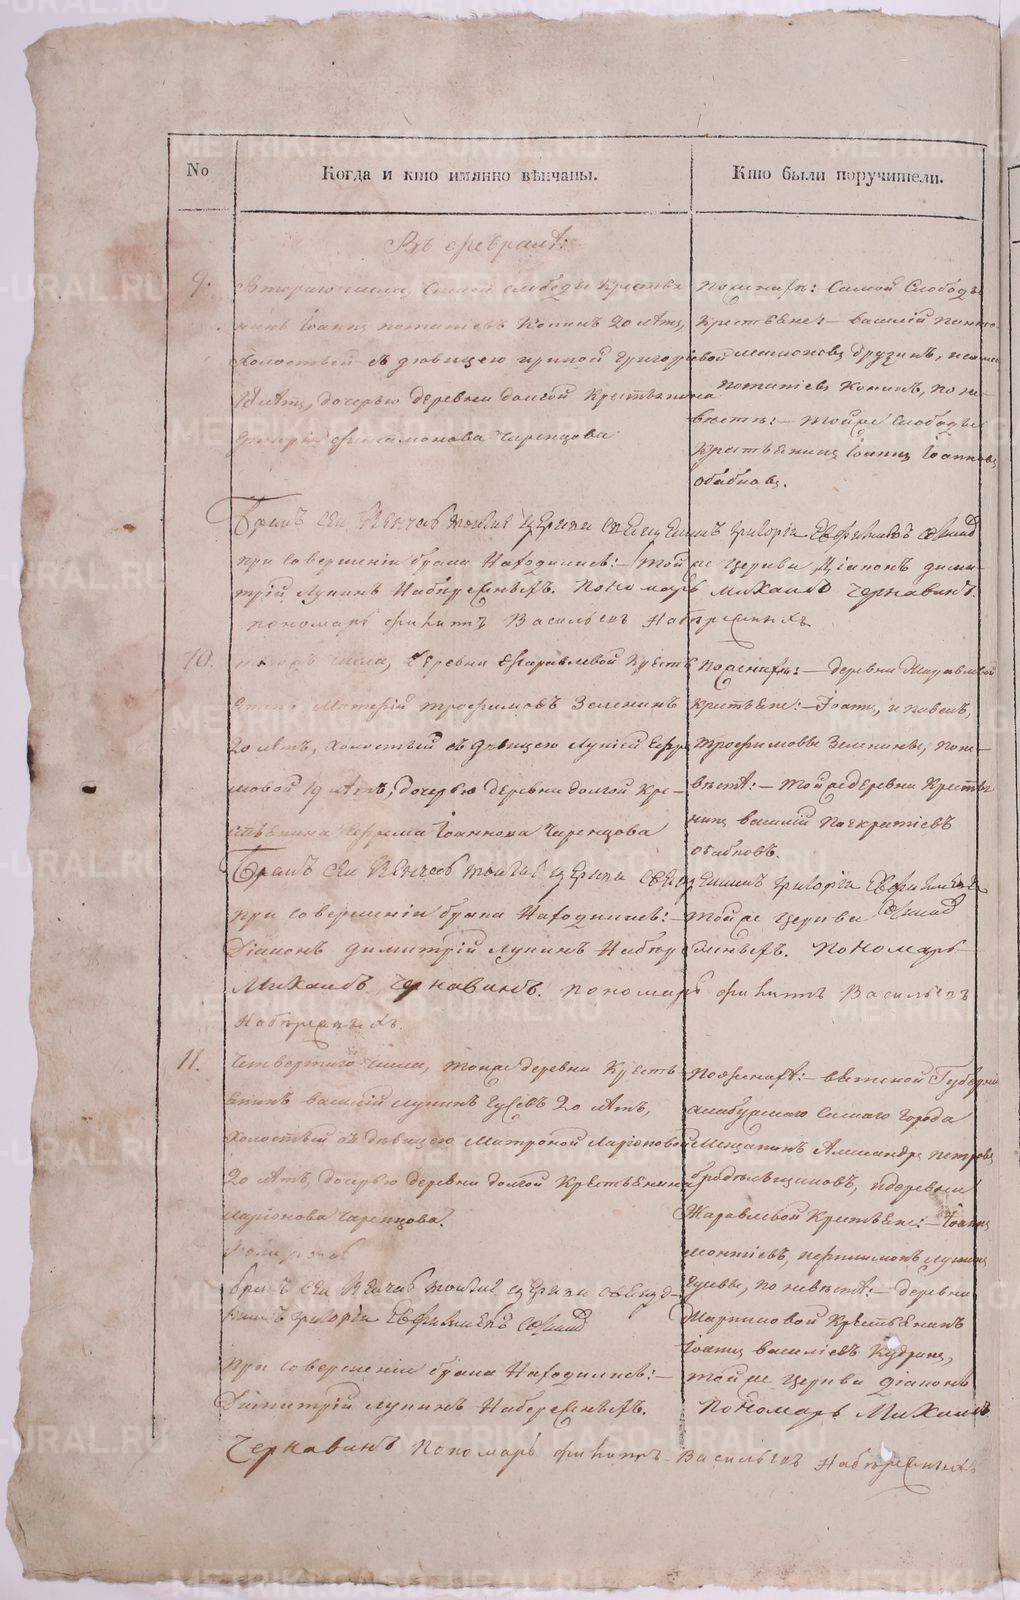 No
Когда и кто имянно вѣнчаны.
Кто были поручители.
Въ февралѣ:
9.
Втораго числа, самой слободы Крестья
нинъ Іоаннъ Потапіевъ Конинъ 20 лѣтъ,
холостый съ дѣвицею Ириной Григоріевой
18 лѣтъ, дочерью деревни долгой Крестьянина
Григорія Филамонова Чаренцова
По женихѣ:— Самой Слободы
Крестьяне:— василій
Друзинъ,
Потапіевъ Конинъ, по не-
вѣстѣ:— тойже слободы
Крестьянинъ Іоаннъ Іоанновъ
обабковъ.
Бракъ сей Вѣнчавъ тоя церкви священникъ Григорій
при совершеніи брака Находились:— тойже церкви Діаконъ дими-
трій Лукинъ Набережныхъ. Пономарь Михаилъ Чернавинъ.
пономарь филиппъ Васильевъ Набережныхъ
10.
числа, деревни Жаравлевой Кресть
янинъ Трофимовъ Зеленинъ
20 лѣтъ, холостый съ дѣвицею Лукіей Ефре
мовой 19 лѣтъ, дочерью деревни долгой Кре-
стьянина Ефрема Іоаннова Чаренцова
По женихѣ:— деревни Жаравлевой
Крестьяне:— Іоаннъ, и павелъ,
Трофимовы Зеленины, поне-
вѣстѣ:— тойже деревни Крестья
нинъ василій Панкратіевъ
обабковъ.
Бракъ сей Вѣнчавъ тоя церкви священникъ Григорій
при совершеніи брака Находились:— тойже церкви
Діаконъ димитрій лукинъ Набережныхъ. Пономарь
Михаилъ Чернавинъ. пономарь филиппъ Васильевъ
Набережныхъ.
11.
Четвертаго числа, тойже деревни Кресть
янинъ василій лукинъ Гусевъ 20 лѣтъ,
холостый съ дѣвицею Матроной Ларіоновой
20 лѣтъ, дочерью деревни долгой Крестьянина
Ларіонова Чаренцова.
По женихѣ:— вятской Губерніи
самаго города
Мещанинъ Александръ петровъ
и деревни
Жаравлевой Крестьяне:— Іоаннъ
лукины
Гусевы, по невѣстѣ:— деревни
Мартыновой Крестьянинъ
Іоаннъ василіевъ Кудринъ,
Бракъ сей Вѣнчавъ тоя церкви священ-
никъ Григорій
при совершеніи брака Находились:— тойже церкви діаконъ
Димитрій лукинъ Набережныхъ. Пономарь Михаилъ
Чернавинъ Пономарь филиппъ Васильевъ Набережныхъ